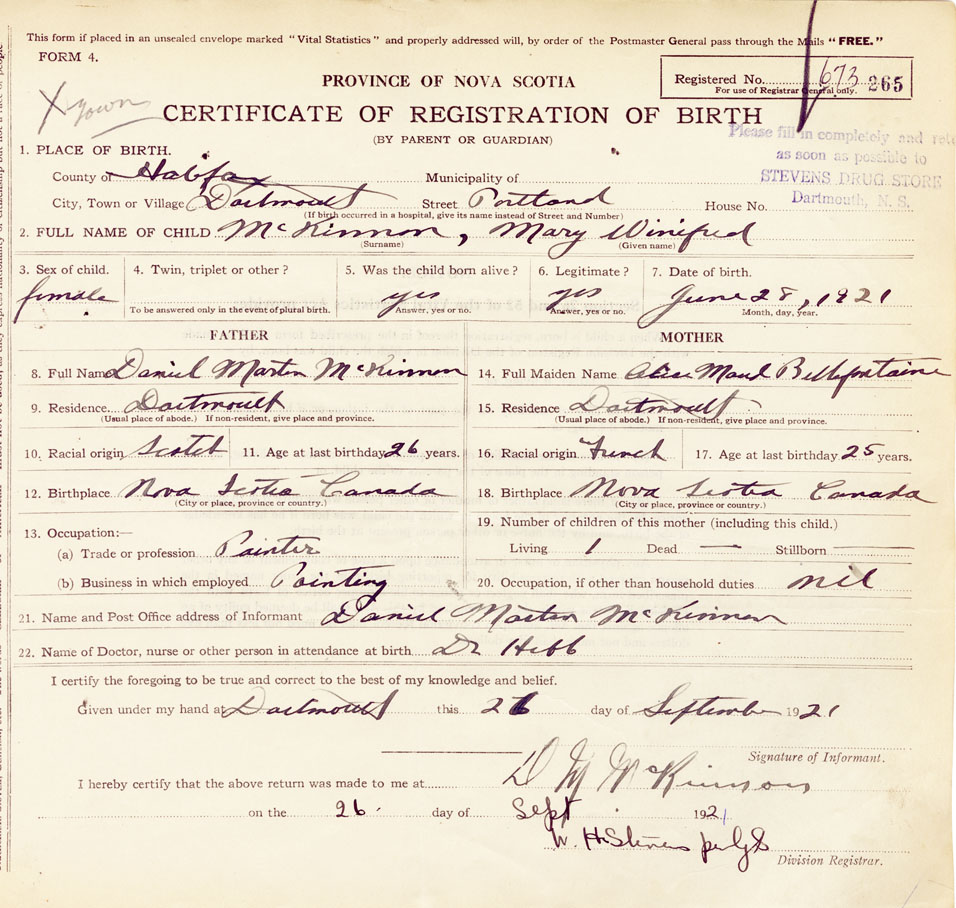 This form if placed in an unsealed envelope marked "Vital Statistics" and properly addressed will, by order of the Postmaster General pass through the Mails "FREE."
FORM 4.
PROVINCE OF NOVA SCOTIA
Registered No. 673 265
For use of Registrar General only.
X Town
CERTIFICATE OF REGISTRATION OF BIRTH
(BY PARENT OR GUARDIAN)
Please fill in completely and
as soon as possible to
STEVENS DRUG STORE
Dartmouth, N. S.
1. PLACE OF BIRTH.
County of Halifax Municipality of
City, Town or Village Dartmouth Street Portland House No.
(If birth occurred in a hospital, give its name instead of Street and Number)
2. FULL NAME OF CHILD McKinnon, Mary Winifred
(Surname) (Given name)
3. Sex of child. 4. Twin, triplet or other? 5. Was the child born alive? 6. Legitimate? 7. Date of birth.
female yes yes June 28, 1921
To be answered only in the event of plural birth. Answer, yes or no. Answer, yes or no. Month, day, year.
FATHER MOTHER
8. Full Name Daniel Martin McKinnon 14. Full Maiden Name Alise Maud Bellefontaine
9. Residence Dartmouth 15. Residence Dartmouth
(Usual place of abode.) If non-resident, give place and province. (Usual place of abode.) If non-resident, give place and province.
10. Racial origin Scotch 11. Age at last birthday 26 years. 16. Racial origin French 17. Age at last birthday 25 years.
12. Birthplace Nova Scotia Canada 18. Birthplace Nova Scotia Canada
(City or place, province or country.) (City or place, province or country.)
13. Occupation:— 19. Number of children of this mother (including this child.)
(a) Trade or profession Painter Living 1 Dead — Stillborn —
(b) Business in which employed Painting 20. Occupation, if other than household duties nil
21. Name and Post Office address of Informant Daniel Martin McKinnon
22. Name of Doctor, nurse or other person in attendance at birth Dr Hebb
I certify the foregoing to be true and correct to the best of my knowledge and belief.
Given under my hand at Dartmouth this 26 day of September 1921
D M McKinnon
Signature of Informant.
I hereby certify that the above return was made to me at
on the 26 day of Sept 1921
W. H Stevens per
Division Registrar.